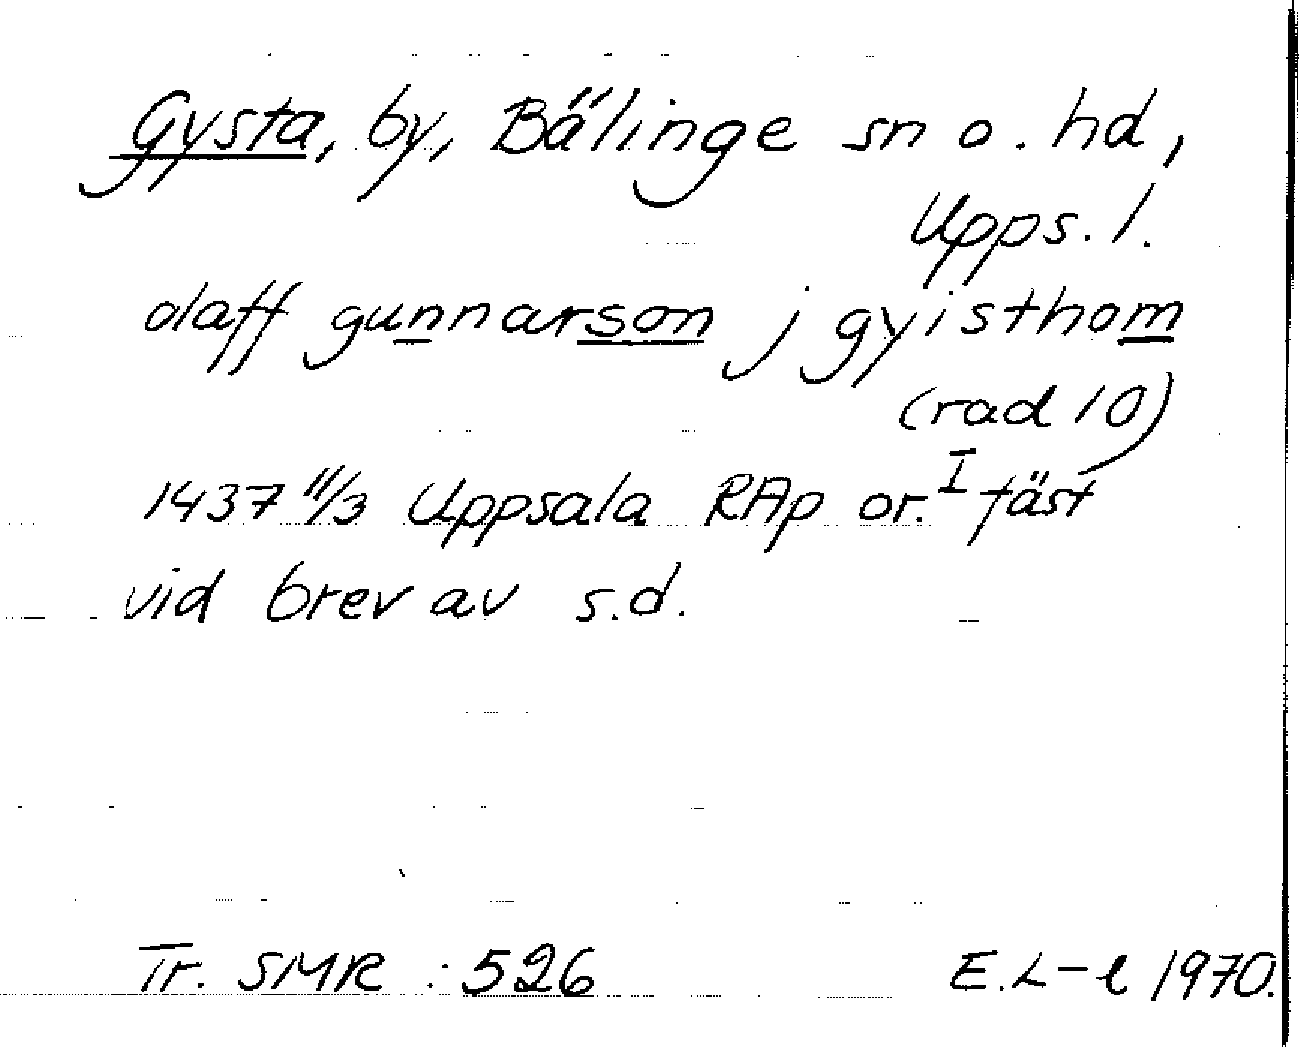 Gysta, by, Bälinge sn o. hd,
Upps. l.
olaff gunnarson j gyisthom
(rad 10)
1437 11/3 Uppsala RAp or. I fäst
vid brev av s.d.
Tr. SMR : 526 E.L-l 1970.